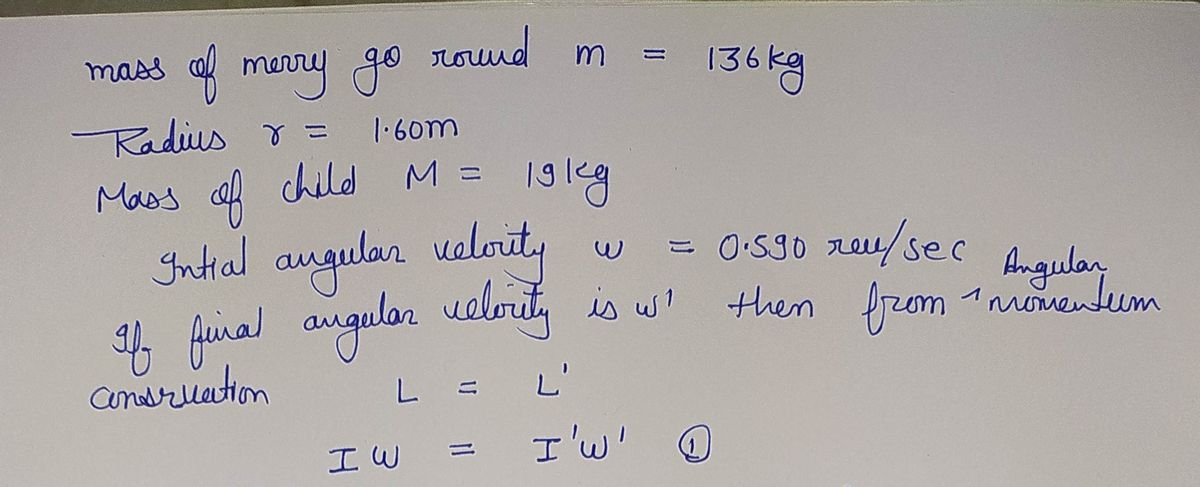 mass of merry go round m = 136kg
Radius r = 1.60m
Mass of child M = 19kg
Intial angular velocity w = 0.590 rev/sec
If final angular velocity is w' then from Angular momentum
consruation L = L'
I w = I'w' ①